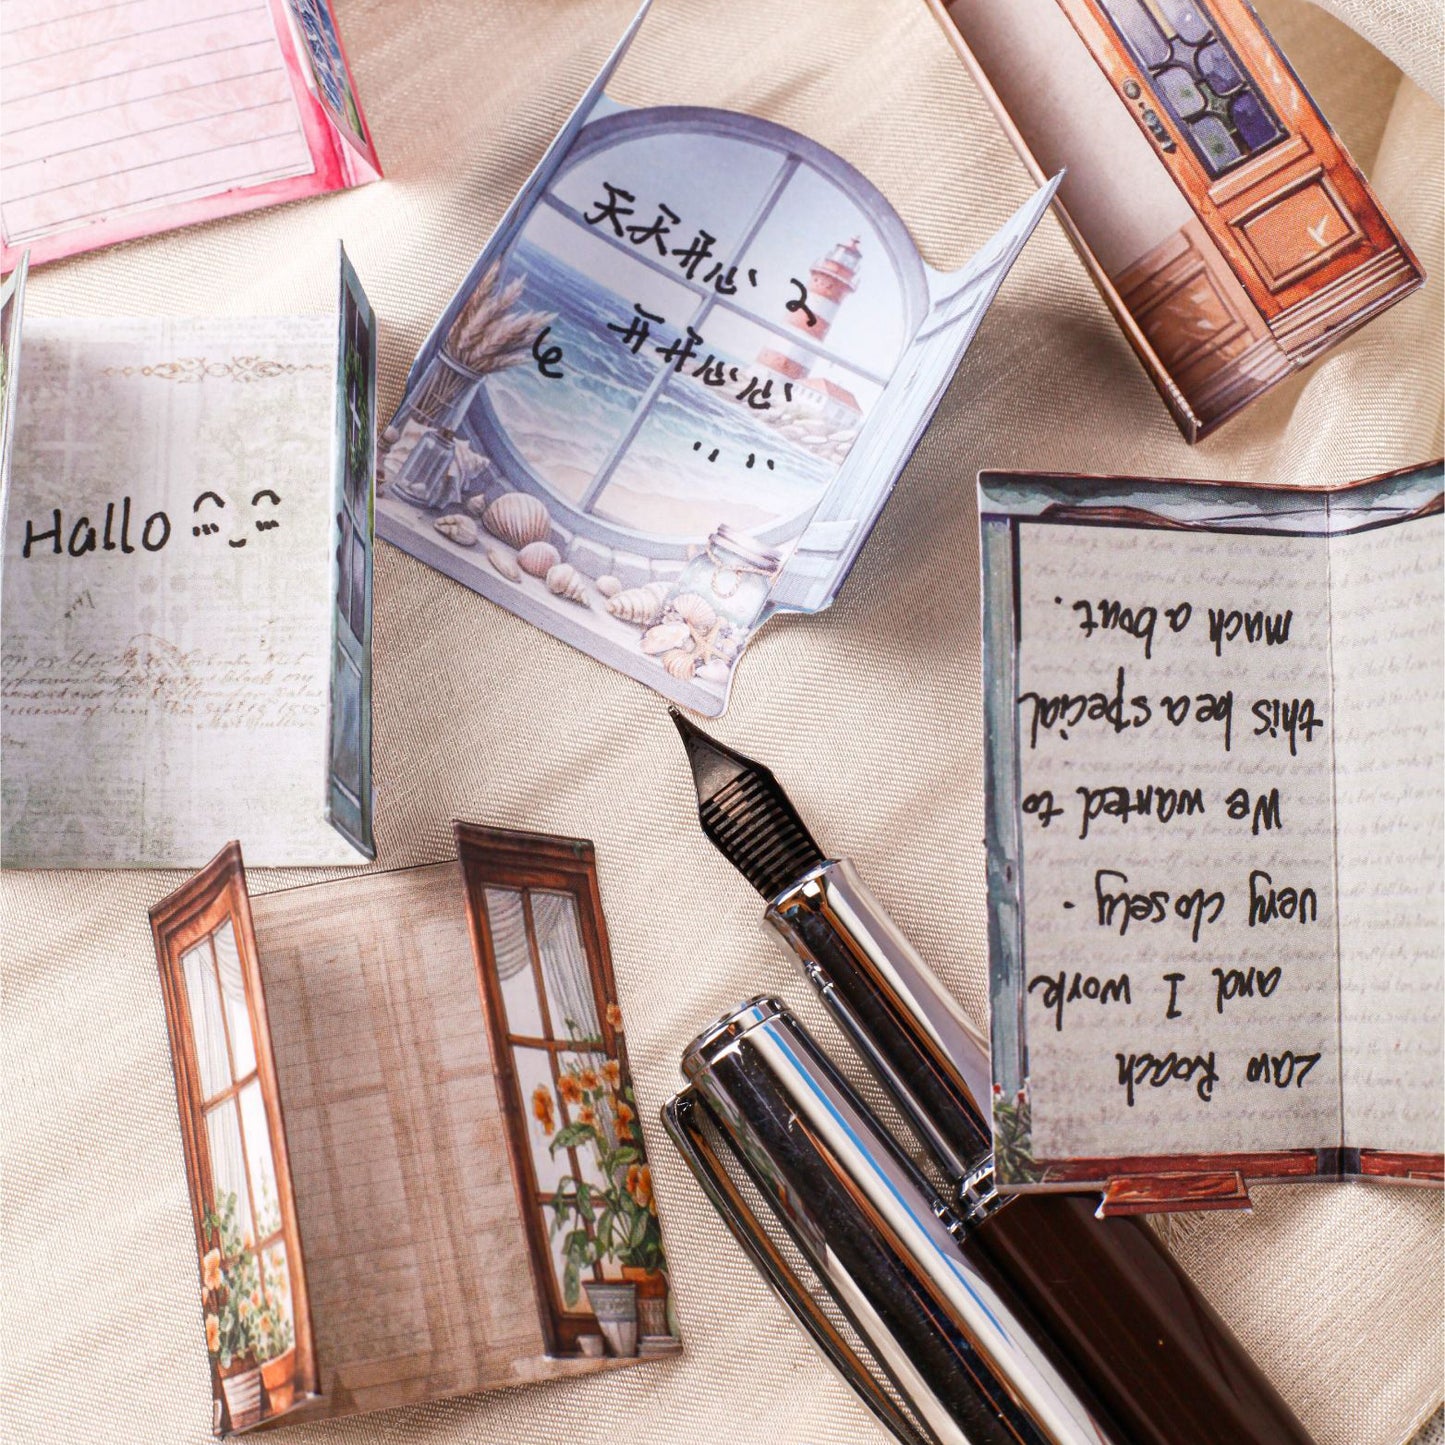 Hallo
天天开心
开开心心
Law Roach
and I work
very closely.
We wanted to
this be a special
much about.